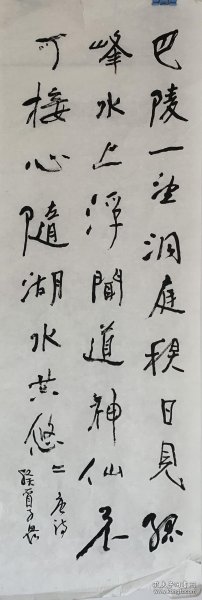 巴陵一望洞庭秋日見孤
峰水上浮聞道神仙不
可接心隨湖水共悠〻唐诗